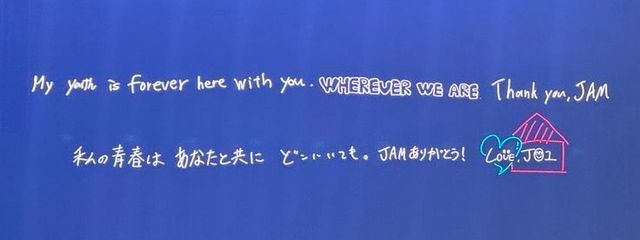 My youth is forever here with you. WHEREVER WE ARE. Thank you, JAM
私の青春は あなたと共に どこにいても。JAMありがとう! Love, JO1